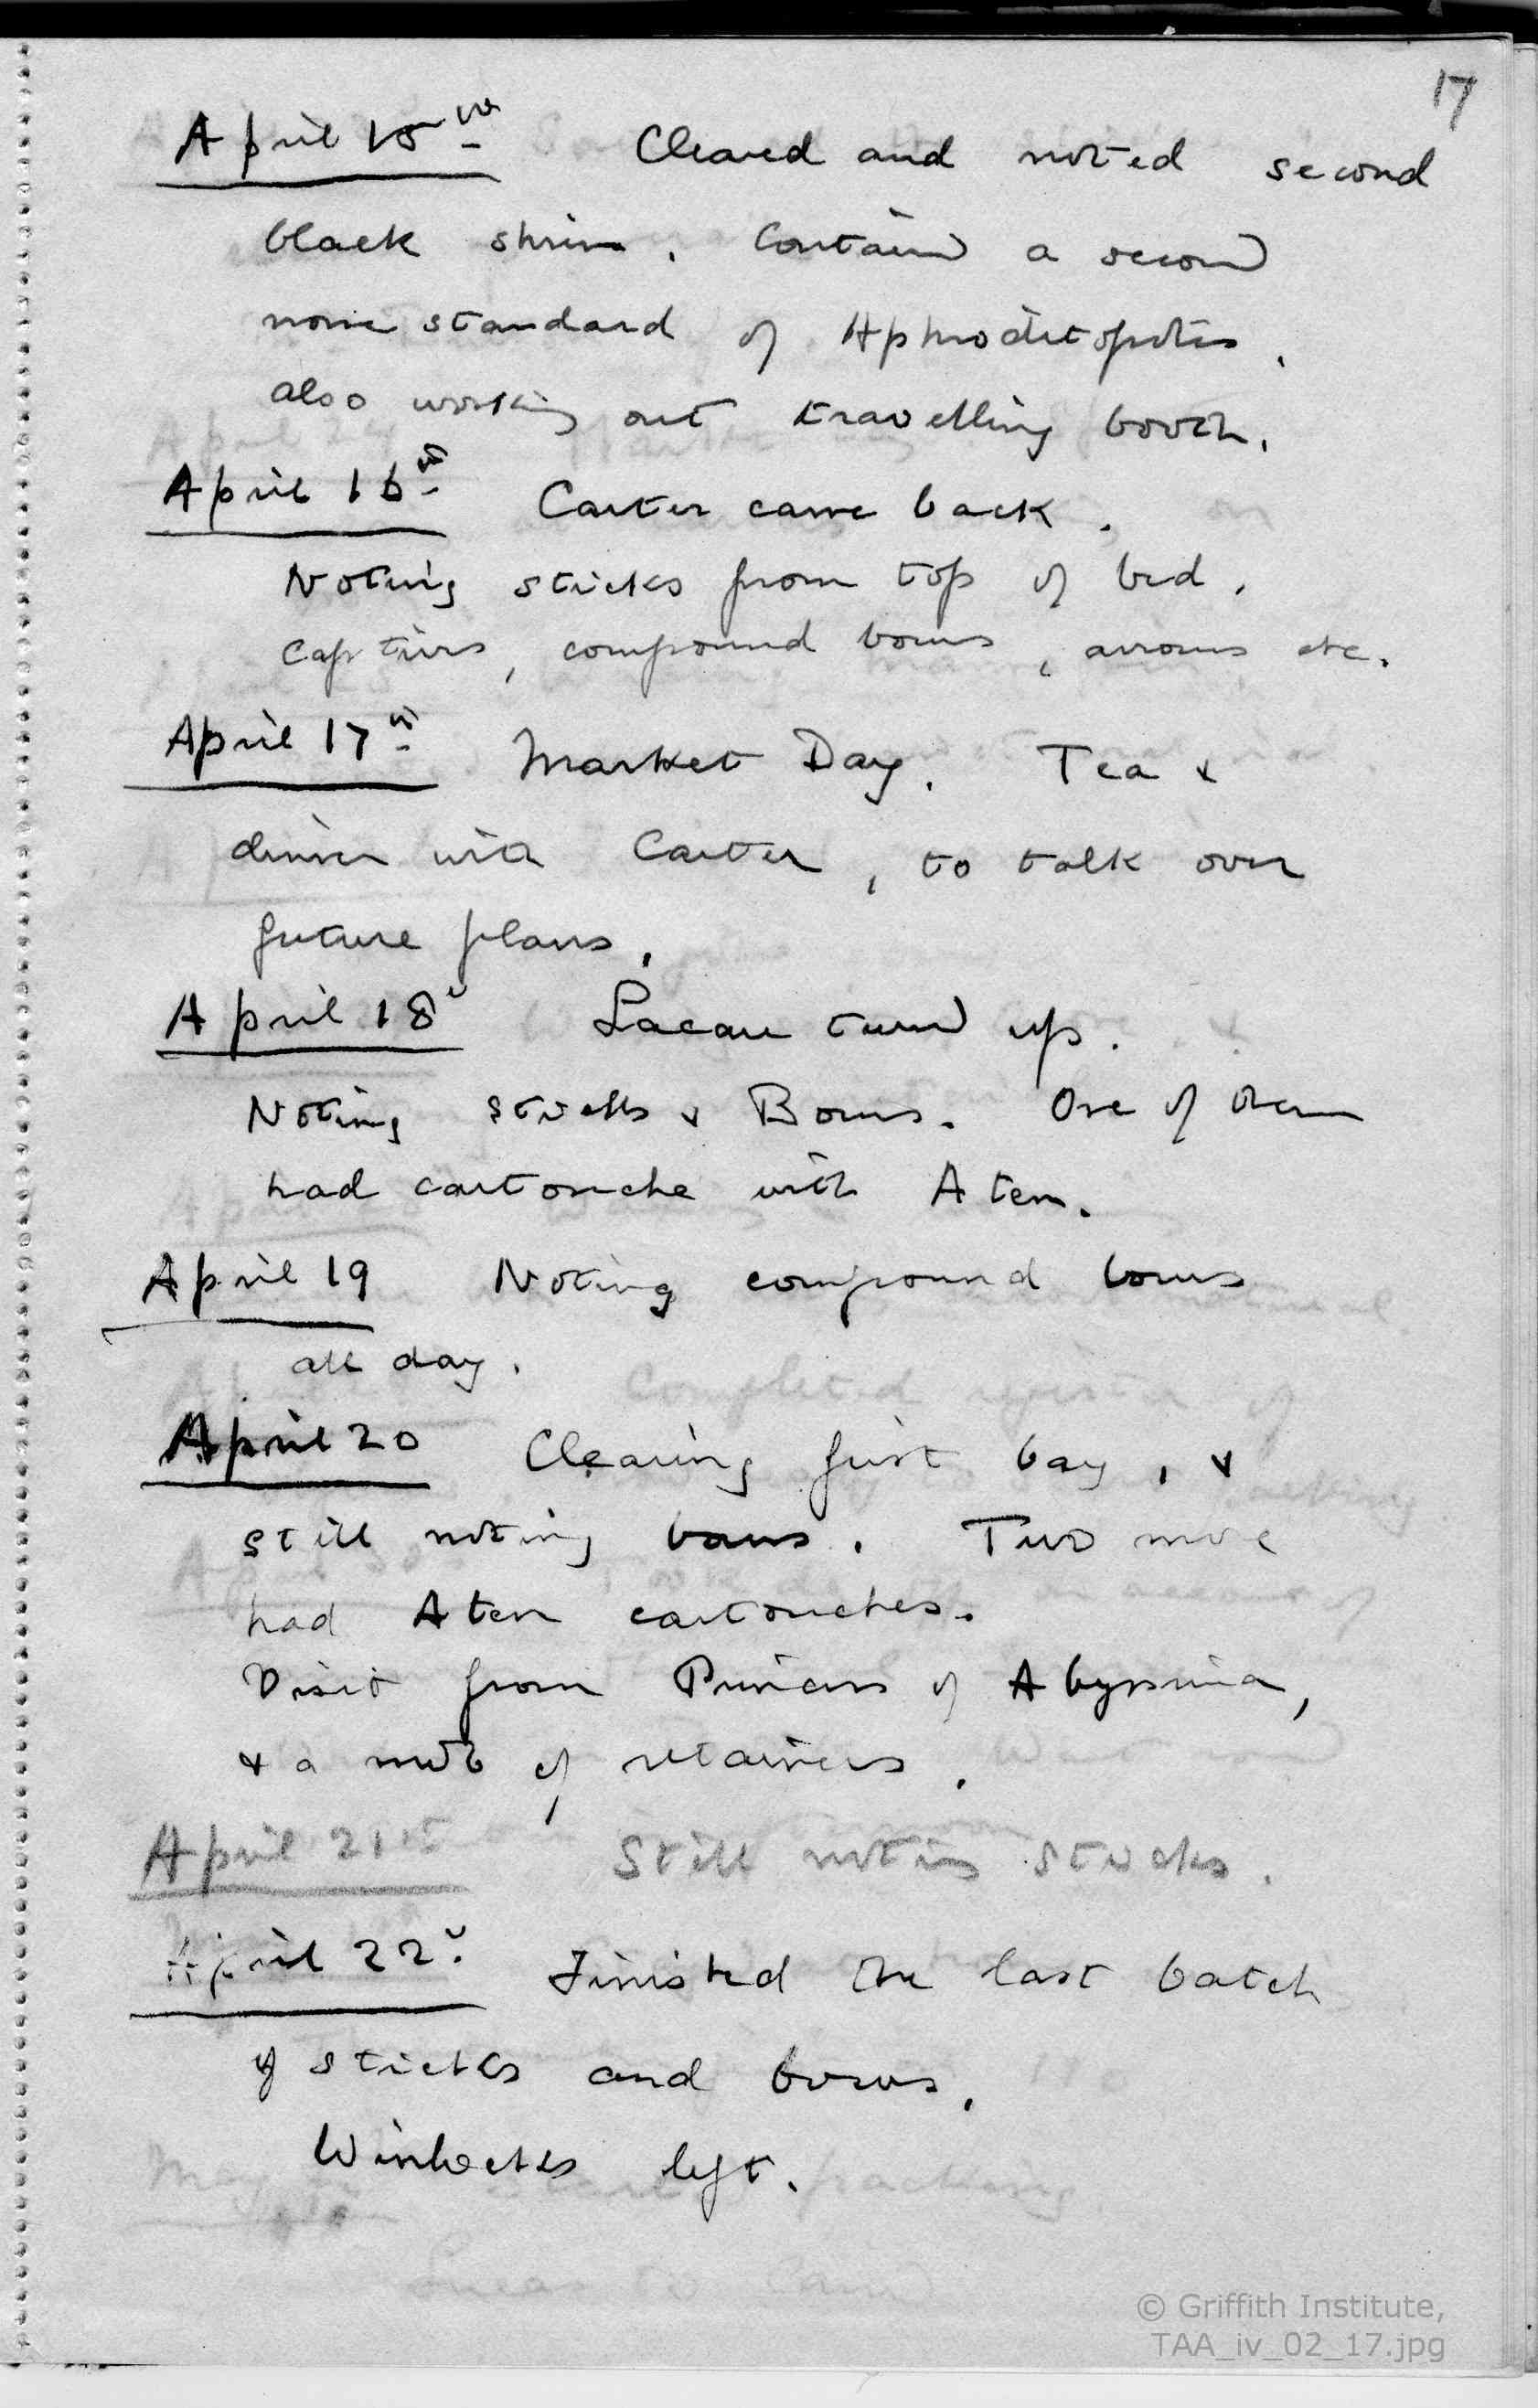 17
April 15th Cleared and noted second
black shrine. Contained a second
nome standard of Aphroditopolis.
also working out travelling booth.
April 16th Carter came back.
Noting sticks from top of bed.
Captives, compound bows, arrows etc.
April 17th Market Day. Tea &
dinner with Carter, to talk over
future plans.
April 18th Lacau turned up.
Noting sticks & Bows. One of them
had cartouche with Aten.
April 19 Noting compound bows
all day.
April 20 Clearing first bay, &
still noting bows. Two more
had Aten cartouches.
Visit from Princess of Abyssinia,
& a mob of retainers.
April 21st Still noting sticks.
April 22d. Finished the last batch
of sticks and bows.
Winlocks left.
© Griffith Institute,
TAA_iv_02_17.jpg